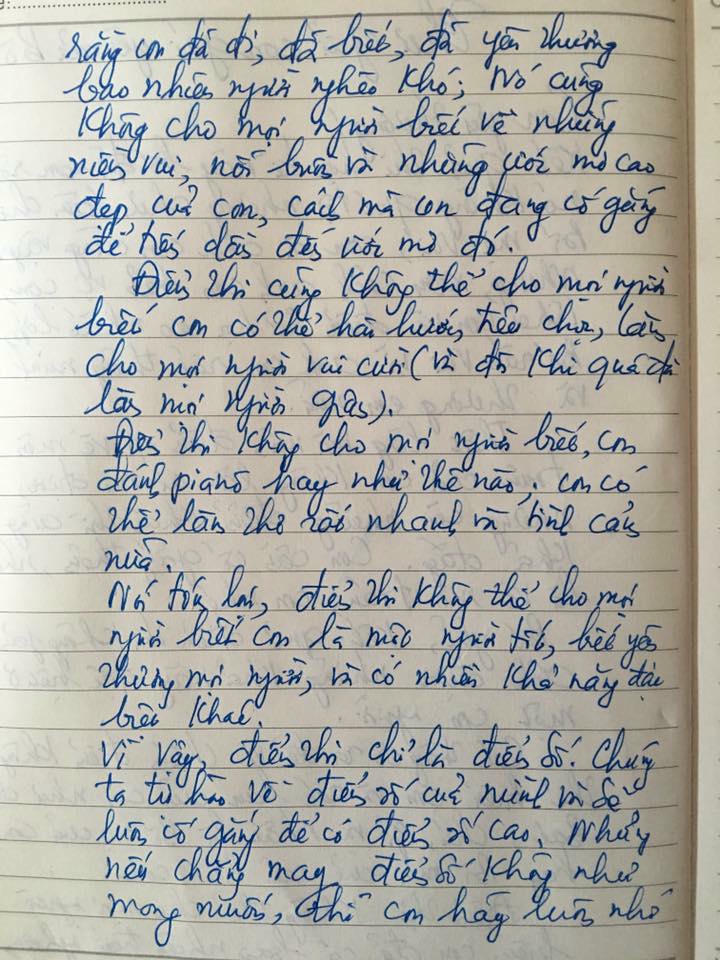 rằng con đã đi, đã biết, đã yêu thương
bao nhiêu người nghèo khó; Nó cũng
không cho mọi người biết về những
niềm vui, nỗi buồn và những ước mơ cao
đẹp của con, cách mà con đang cố gắng
để tiến dần đến ước mơ đó.
Điểm thi cũng không thể cho mọi người
biết con có thể hài hước, tếu chọc, làm
cho mọi người vui cười (và đôi khi quá đà
làm mọi người giận).
Điểm thi không cho mọi người biết, con
đánh piano hay như thế nào; con có
thể làm thơ rất nhanh và tình cảm
nữa.
Nói tóm lại, điểm thi không thể cho mọi
người biết con là một người tốt, biết yêu
thương mọi người, và có nhiều khả năng đặc
biệt khác.
Vì vậy, điểm thi chỉ là điểm số. Chúng
ta tự hào về điểm số của mình và sẽ
luôn cố gắng để có điểm số cao. Nhưng
nếu chẳng may điểm số không như
mong muốn, thì con hãy luôn nhớ